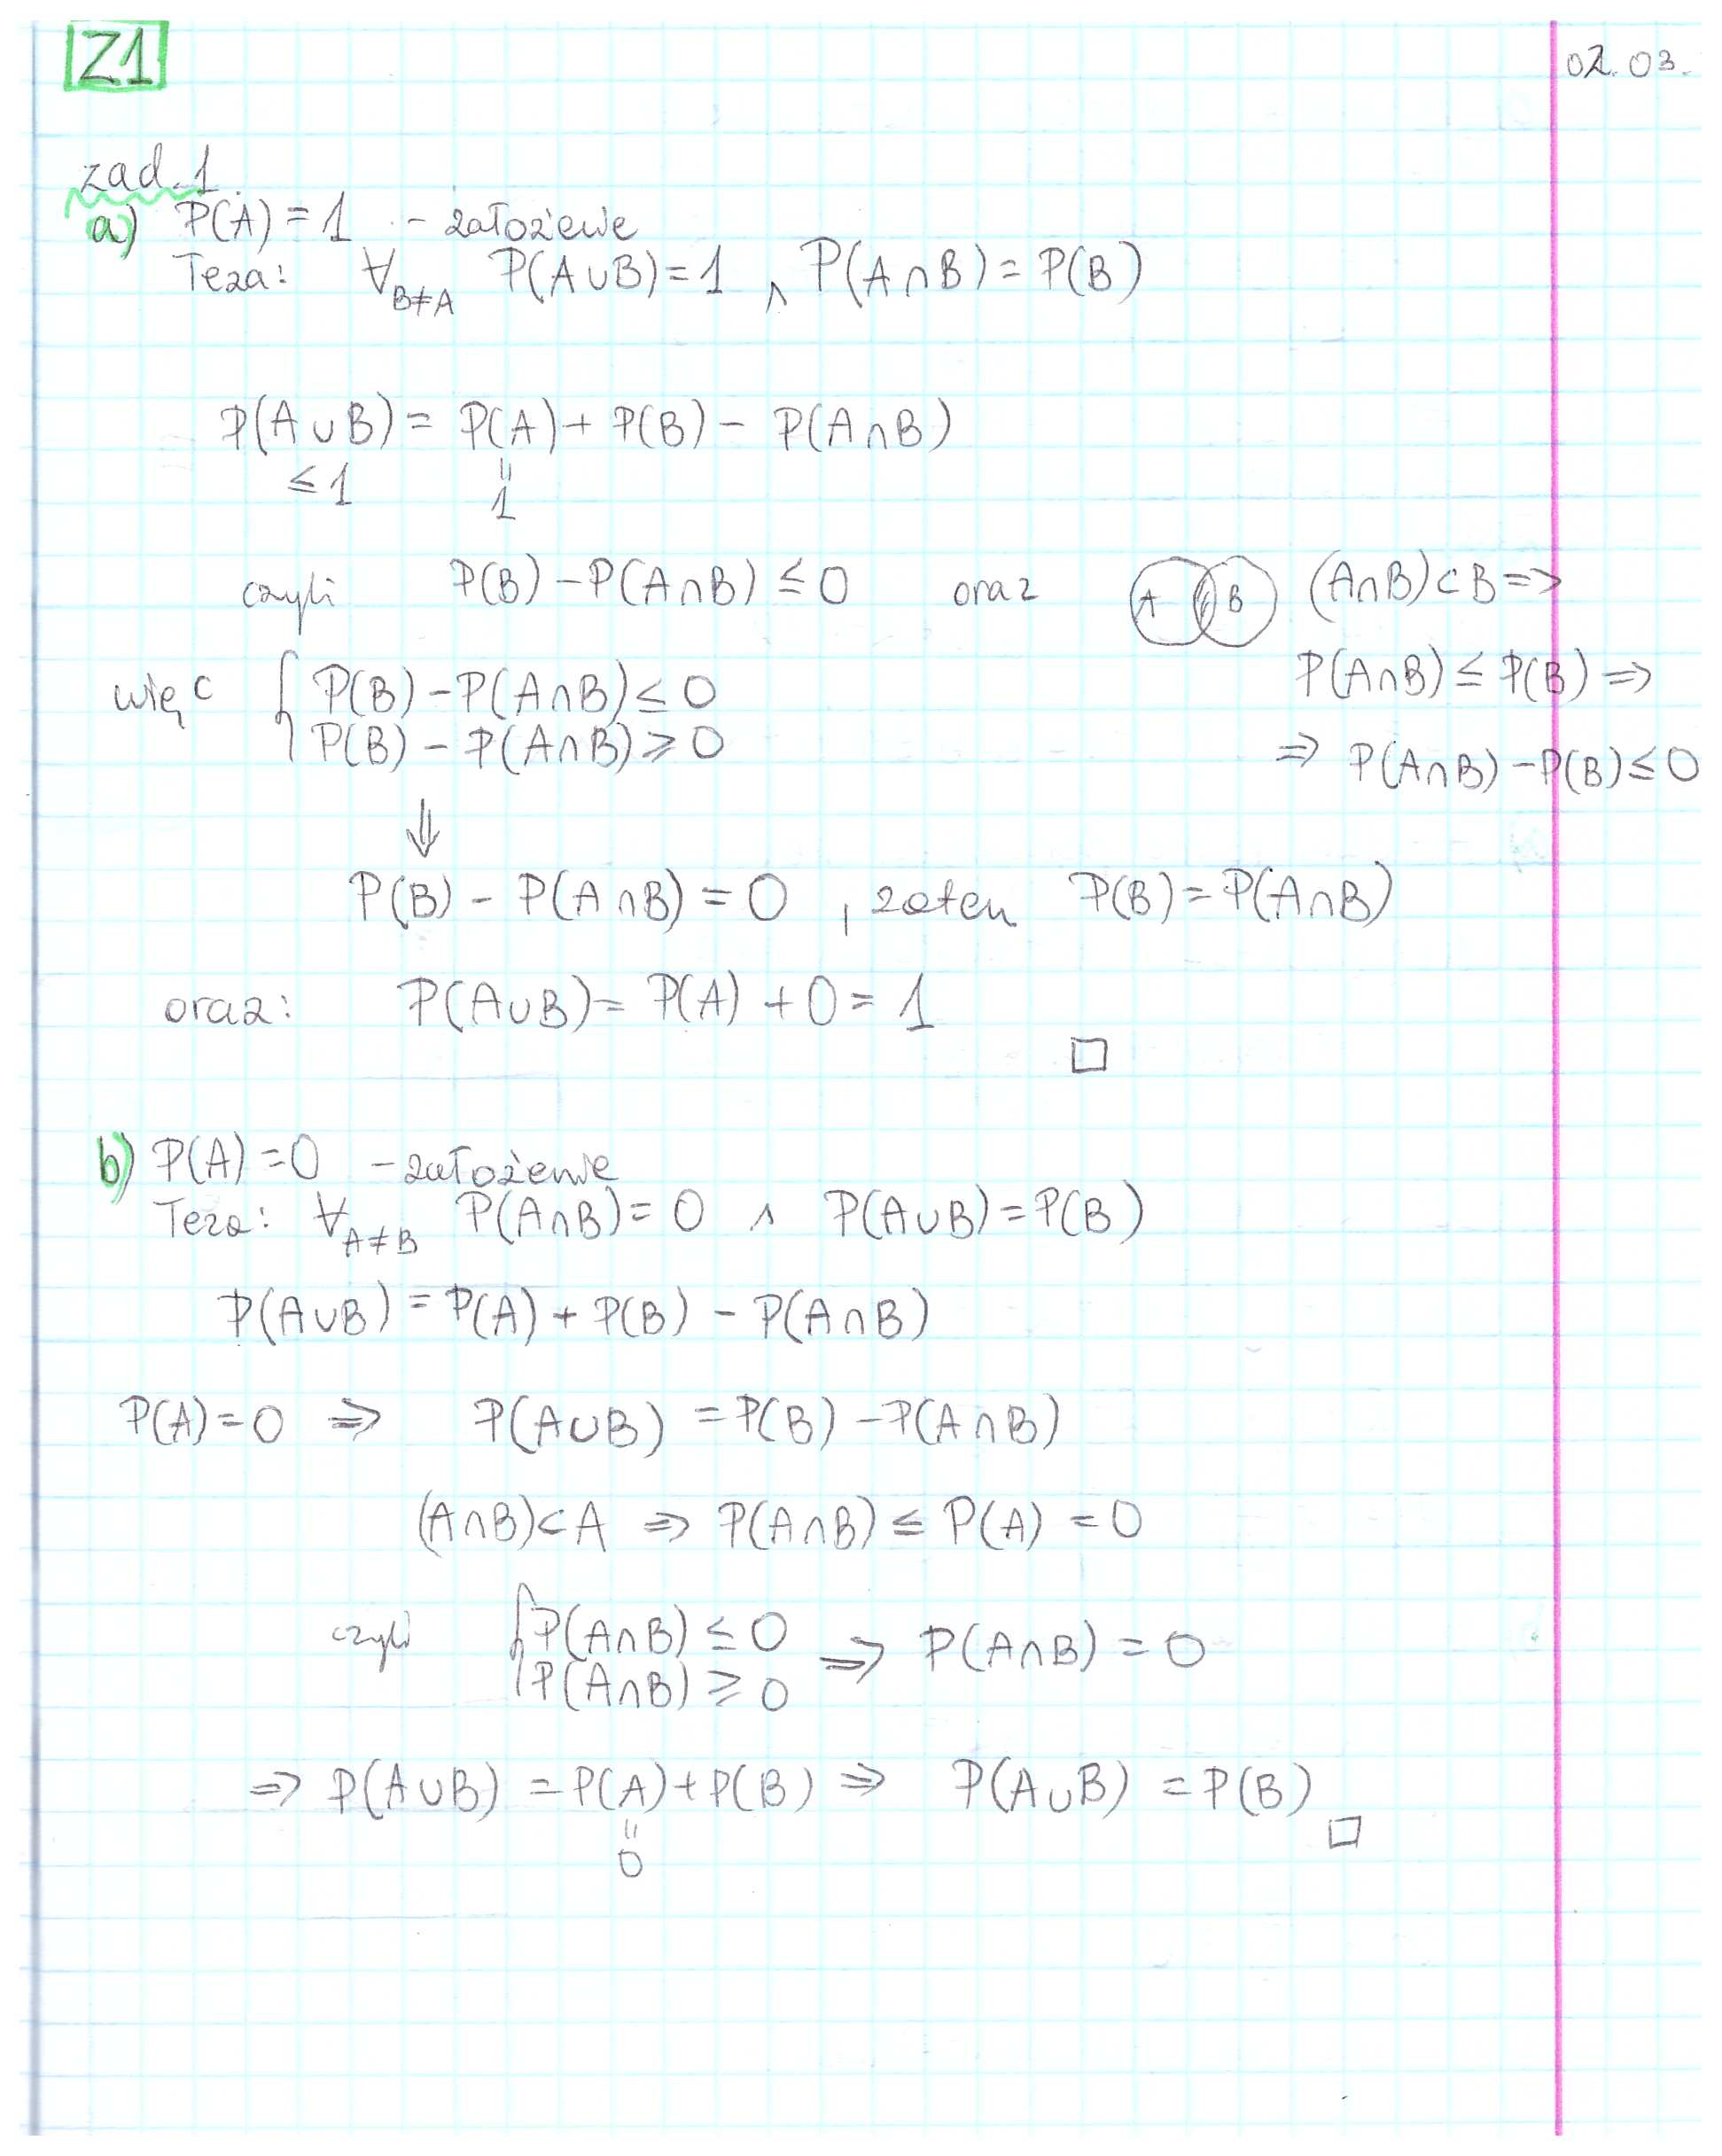 Z1
02.03.
zad.1.
a) P(A) = 1 - założenie
Teza: ∀B≠A P(A∪B) = 1 ∧ P(A∩B) = P(B)
P(A∪B) = P(A) + P(B) - P(A∩B)
≤ 1 = 1
czyli P(B) - P(A∩B) ≤ 0 oraz A B (A∩B)⊂B =>
P(A∩B) ≤ P(B) =>
więc { P(B) - P(A∩B) ≤ 0
P(B) - P(A∩B) ≥ 0
=> P(A∩B) - P(B) ≤ 0
⇓
P(B) - P(A∩B) = 0, zatem P(B) = P(A∩B)
oraz: P(A∪B) = P(A) + 0 = 1
□
b) P(A) = 0 - założenie
Teza: ∀A≠B P(A∩B) = 0 ∧ P(A∪B) = P(B)
P(A∪B) = P(A) + P(B) - P(A∩B)
P(A) = 0 => P(A∪B) = P(B) - P(A∩B)
(A∩B)⊂A => P(A∩B) ≤ P(A) = 0
czyli { P(A∩B) ≤ 0
P(A∩B) ≥ 0 => P(A∩B) = 0
=> P(A∪B) = P(A) + P(B) => P(A∪B) = P(B)
= 0
□